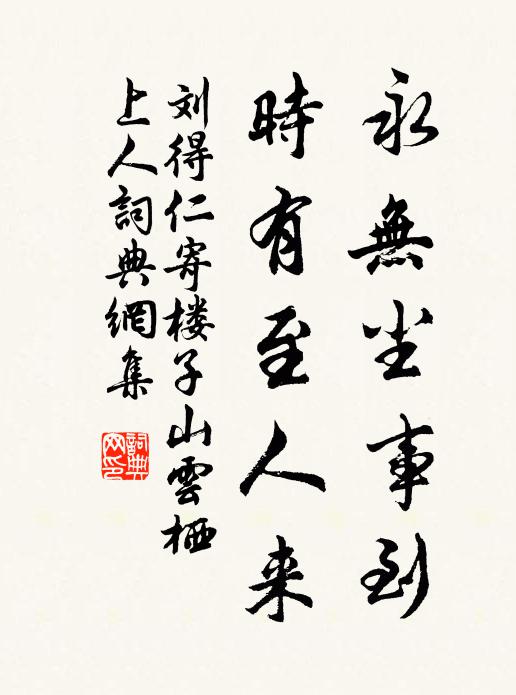 永無尘事到
時有至人来
刘得仁寄楼子山雲栖
上人詞典網集
詞典网印